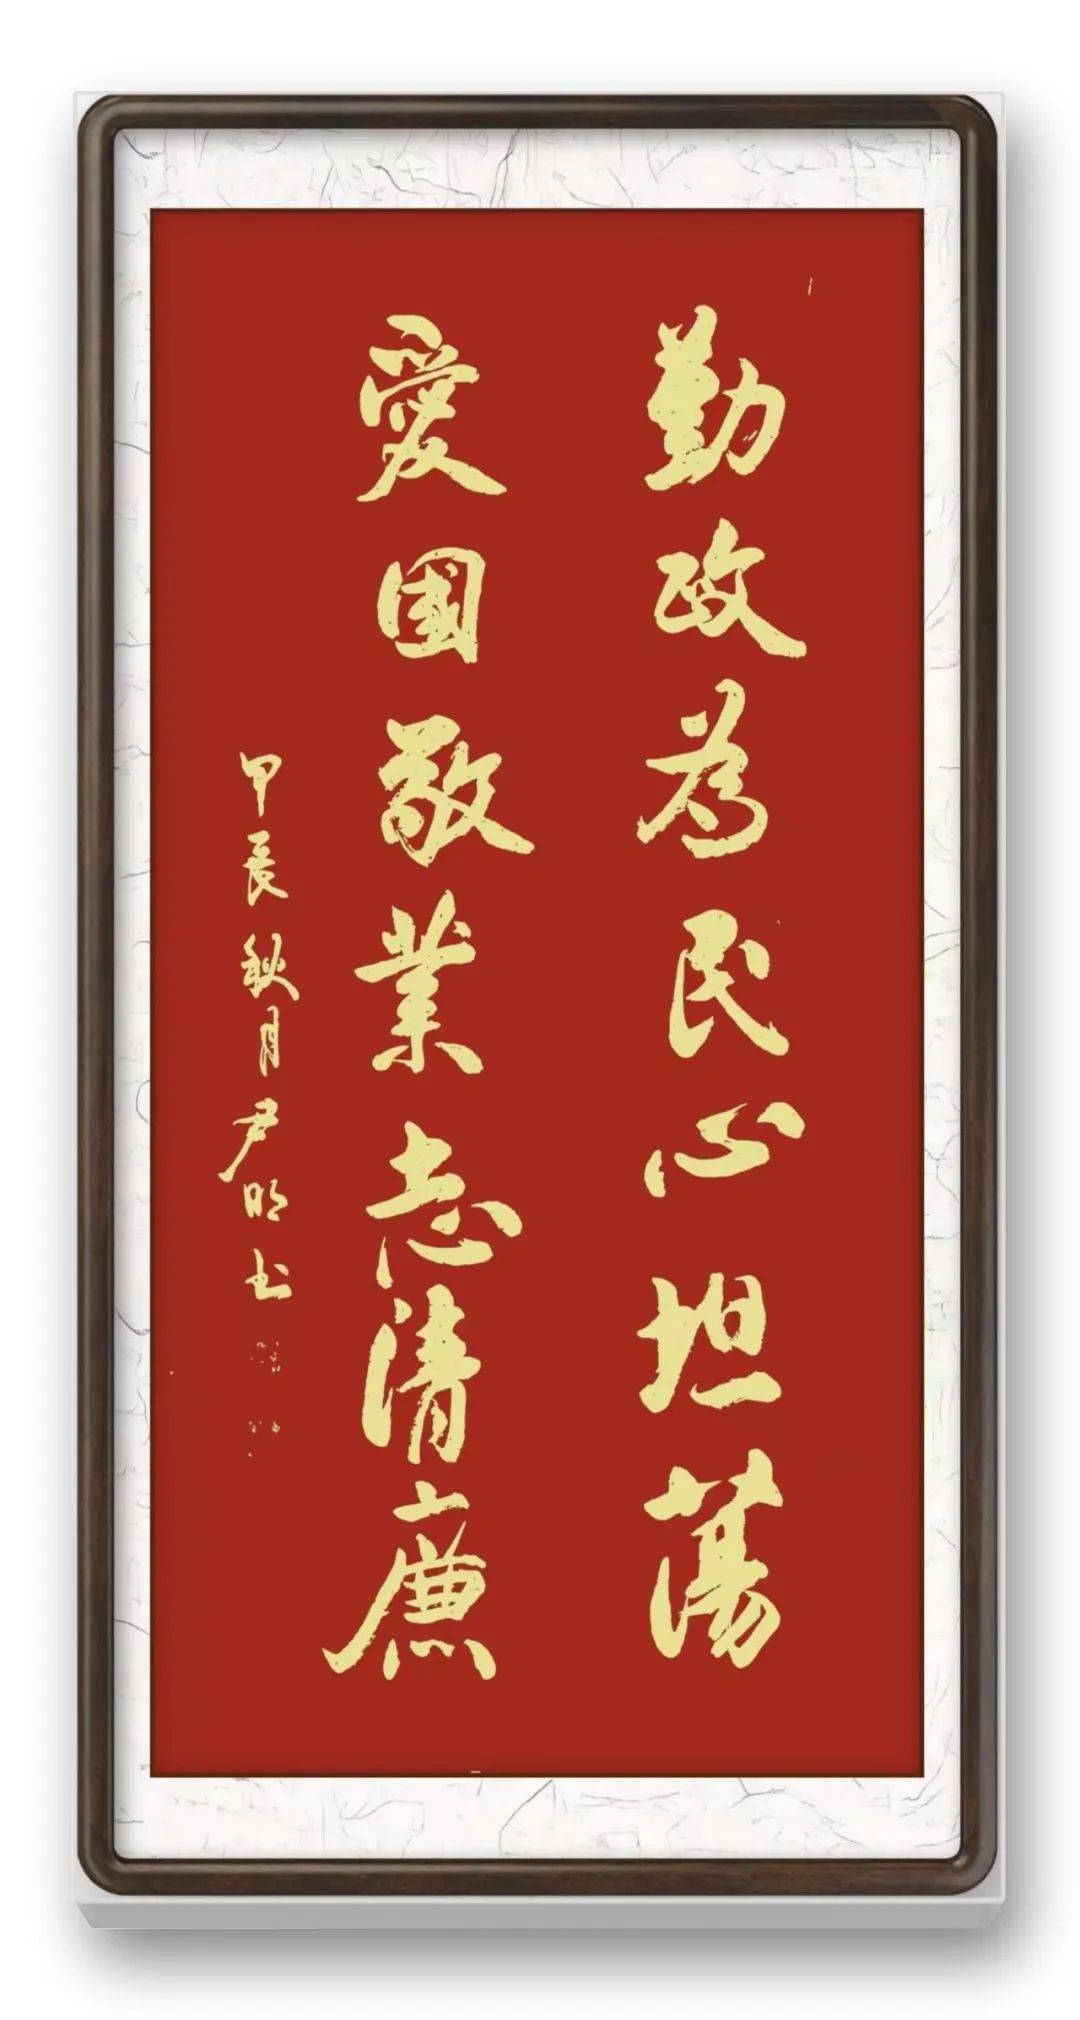 勤政為民心坦蕩
愛國敬業志清廉
甲辰秋月尹明书